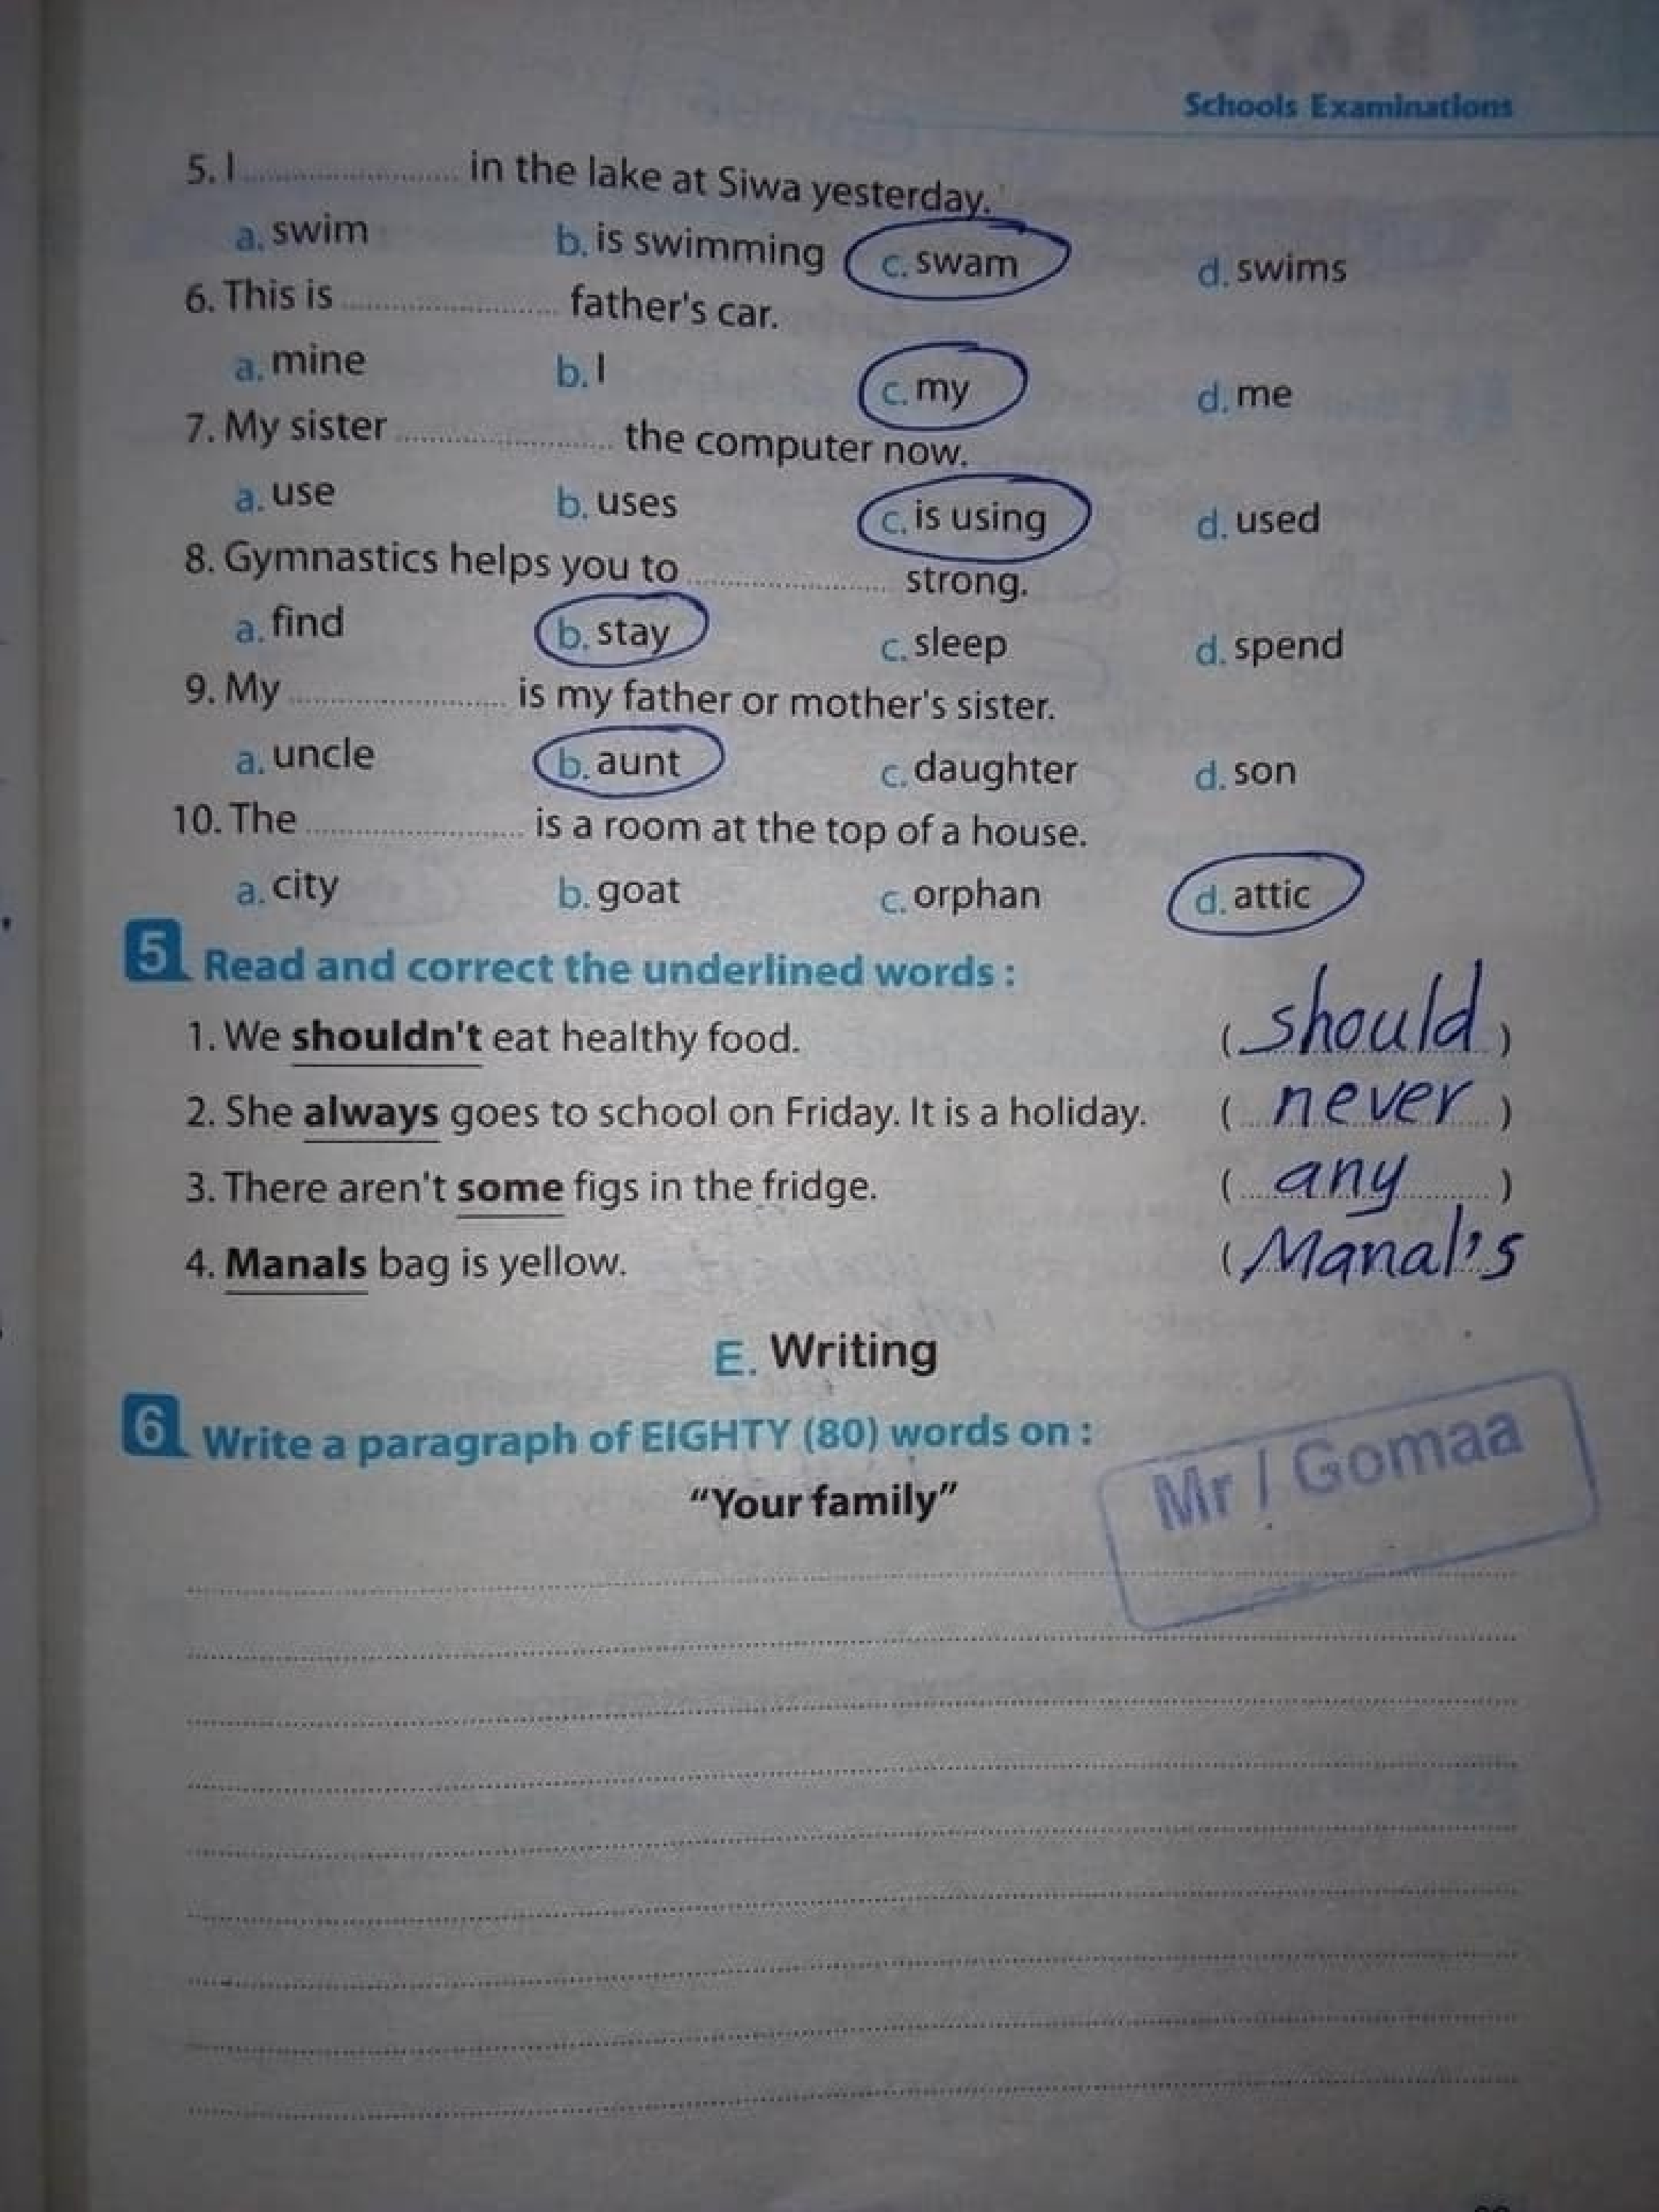 Schools Examinations
5. I ........................ in the lake at Siwa yesterday.
a. swim b. is swimming c. swam d. swims
6. This is ........................ father's car.
a. mine b. I c. my d. me
7. My sister ........................ the computer now.
a. use b. uses c. is using d. used
8. Gymnastics helps you to ........................ strong.
a. find b. stay c. sleep d. spend
9. My ........................ is my father or mother's sister.
a. uncle b. aunt c. daughter d. son
10. The ........................ is a room at the top of a house.
a. city b. goat c. orphan d. attic
5 Read and correct the underlined words :
1. We shouldn't eat healthy food. (should)
2. She always goes to school on Friday. It is a holiday. (never)
3. There aren't some figs in the fridge. (any)
4. Manals bag is yellow. (Manal's
E. Writing
6 Write a paragraph of EIGHTY (80) words on :
"Your family"
Mr / Gomaa